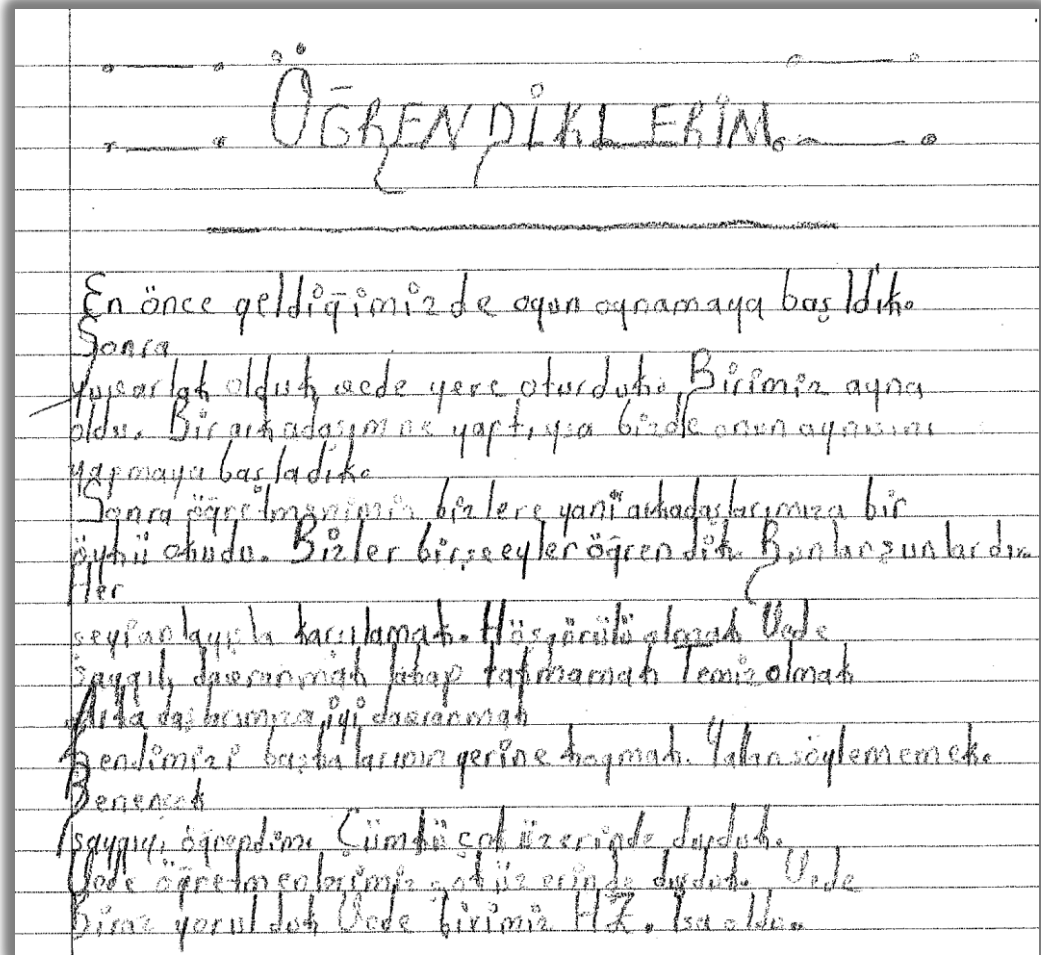 ÖĞRENDİKLERİM
En önce geldiğimizde oyun oynamaya başldık.
Sonra
yuvarlak olduk vede yere oturduk. Birimiz ayna
oldu. Bir arkadaşım ne yaptıysa bizde onun aynısını
yapmaya başladık.
Sonra öğretmenimiz bizlere yani arkadaşlarımıza bir
öykü okudu. Bizler birşeeyler öğrendik. Bunlar şunlardır.
Her
şeyi anlayışla karşılamak. Höşgörülü olmak Vede
saygılı davranmak takmamak Temiz olmak
Arkadaşlarımıza iyi davranmak
kendimizi başkalarının yerine koymak. Yalan söylememek.
Benençok
saygıyı öğrendim. Çümkü çok üzerinde durduk.
Vede öğretmenlerimiz çok üzerinde durduk. Vede
biraz yorulduk Vede birimiz HZ. İsa oldu.